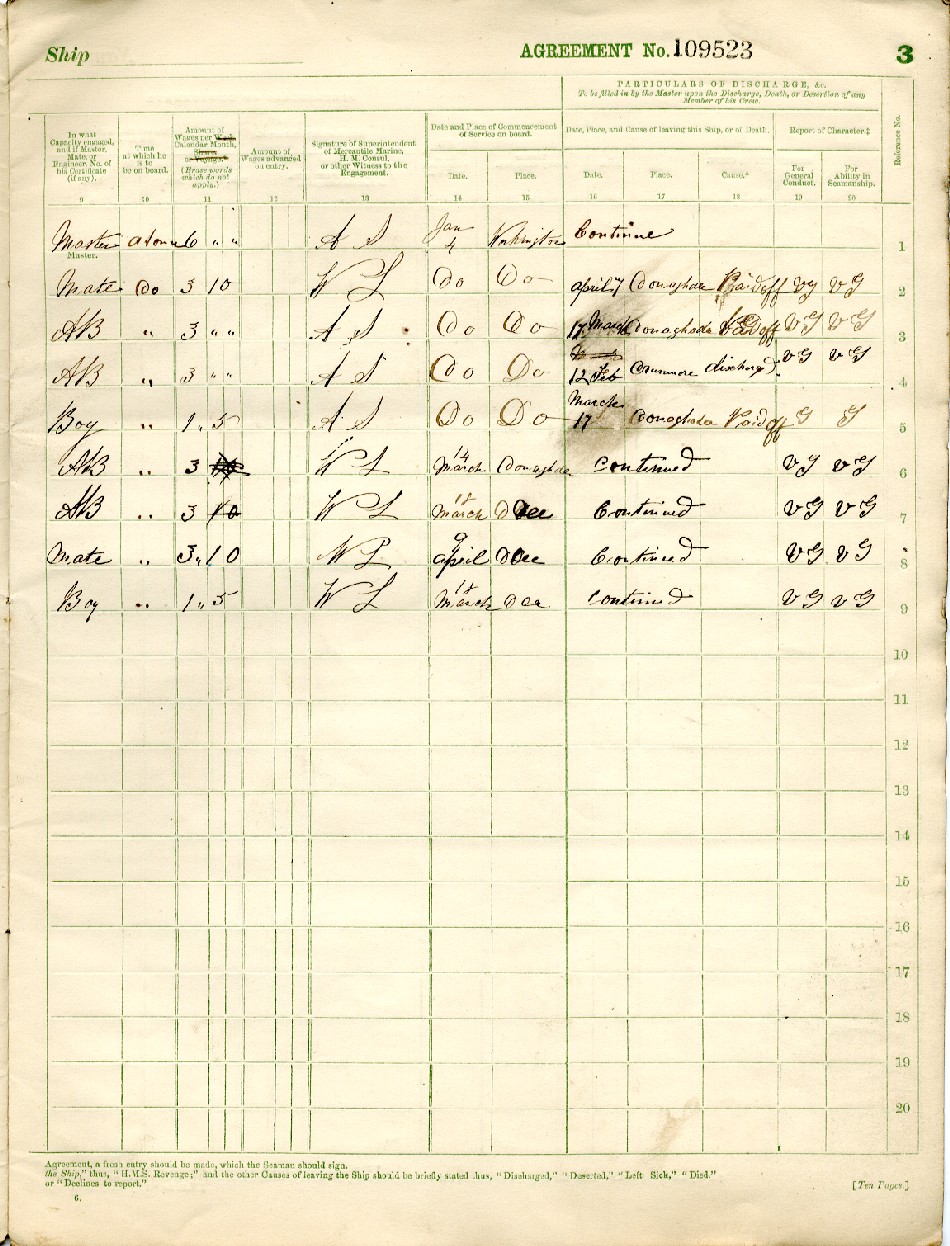 Ship AGREEMENT No. 109523 3
PARTICULARS OF DISCHARGE, &c.
To be filled in by the Master upon the Discharge, Death, or Desertion of any
Member of his Crew.
In what
Capacity engaged,
and if Master,
Mate, or
Engineer, No. of
his Certificate
(if any).
Time
at which he
is to
be on board.
Amount of
Wages per Week
Calendar Month,
Share
or Voyage.
(Erase words
which do not
apply.)
Amount of
Wages advanced
on entry.
Signature of Superintendent
of Mercantile Marine,
H. M. Consul,
or other Witness to the
Engagement.
Date and Place of Commencement
of Service on board.
Date.
Place.
Date, Place, and Cause of leaving this Ship, or of Death.
Date.
Place.
Cause.*
Report of Character.‡
For
General
Conduct.
For
Ability in
Seamanship.
Reference No.
9 10 11 12 13 14 15 16 17 18 19 20
Master at once 6 " " A S Jan 4 Workington Continue 1
Master.
Mate Do 3 10 W L Do Do April 7 Donaghdee Paid off VG VG 2
AB " 3 " " A S Do Do 17 March Donaghdee Paid off VG VG 3
AB " 3 " " A S Do Do 12 Feb discharged VG VG 4
Boy " 1 " 5 A S Do Do March 17 Donaghdee Paid off G G 5
AB " 3 W L 14 March Donaghdee Continued VG VG 6
AB " 3 10 W L 18 March Dee Continued VG VG 7
Mate " 3 " 10 W L 9 April Dee Continued VG VG 8
Boy " 1 " 5 W L 18 March Dee Continued VG VG 9
10
11
12
13
14
15
16
17
18
19
20
Agreement, a fresh entry should be made, which the Seaman should sign.
the Ship," thus, "H.M.S. Revenge;" and the other Causes of leaving the Ship should be briefly stated thus, "Discharged," "Deserted," "Left Sick," "Died."
or "Declines to report."
6.
[Ten Pages.]